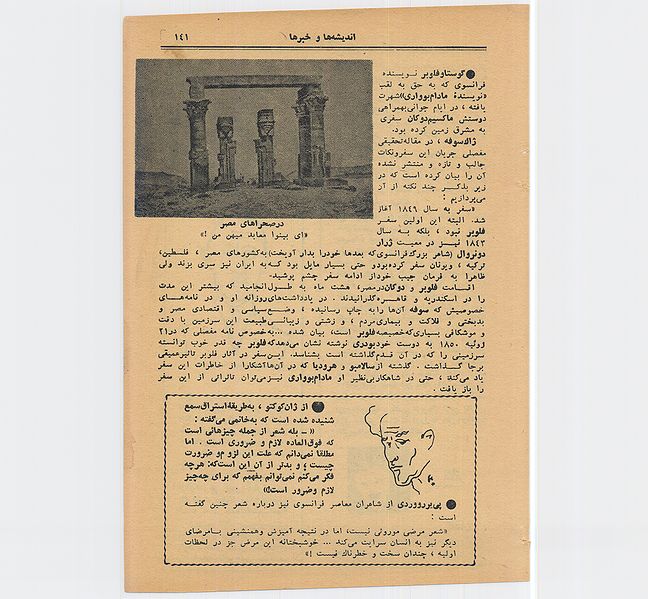 اندیشه‌ها و خبرها
۱۴۱
● گوستاو فلوبر نویسنده
فرانسوی که به حق به لقب
«نویسندهٔ مادام‌بوواری» شهرت
یافته ، در ایام جوانی به‌همراهی
دوستش ماکسیم‌دوکان سفری
به مشرق زمین کرده بود.
ژاك‌سوفه ، در مقاله تحقیقی
مفصلی جریان این سفر و نکات
جالب و تازه و منتشر نشده
آن را بیان کرده است که در
زیر بذکر چند نکته از آن
می‌پردازیم :
«سفر به سال ۱۸۴۹ آغاز
شد. البته این اولین سفر
فلوبر نبود ، بلکه به سال
۱۸۴۳ نیز در معیت ژرار
در صحراهای مصر
«ای بینوا معابد میهن من !»
دونروال (شاعر بزرگ فرانسوی که بعدها خود را بدار آویخت) به کشورهای مصر ، فلسطین،
ترکیه ، ویونان سفر کرده بود و حتی بسیار مایل بود که به ایران نیز سری بزند ولی
ظاهرا به فرمان جیب خود از ادامه سفر چشم پوشید.
اقامت فلوبر و دوکان در مصر، هشت ماه به طول انجامید که بیشتر این مدت
را در اسکندریه و قاهره گذرانیدند . در یادداشت‌های روزانه او و در نامه‌های
خصوصیش که سوفه آن‌ها را به چاپ رسانیده ، وضع سیاسی و اقتصادی مصر و
بدبختی و فلاکت و بیماری مردم ، و زشتی و زیبائی طبیعت این سرزمین با دقت
و موشکافی بسیاری که خصیصه فلوبر است، بیان شده ... به خصوص نامه مفصلی که در ۲۱
ژوئیه ۱۸۵۰ به دوست خود بودری نوشته نشان می‌دهد که فلوبر چه قدر خوب توانسته
سرزمینی را که در آن قدم گذاشته است بشناسد. این سفر در آثار فلوبر تاثیر عمیقی
برجا گذاشت . گذشته از سالامبو و هرودیا که در آن‌ها آشکارا از خاطرات این سفر
یاد می‌کند ، حتی در شاهکار بی‌نظیر او مادام‌بوواری نیز می‌توان تاثراتی از این سفر
را باز یافت .
● از ژان کوکتو ، به طریقهٔ استراق سمع
شنیده شده است که به خانمی می‌گفته :
« ــ بله شعر از جمله چیزهائی است
که فوق‌العاده لازم و ضروری است . اما
مطلقا نمی‌دانم که علت این لزوم و ضرورت
چیست ؛ و بدتر از آن این است که: هرچه
فکر می‌کنم نمی‌توانم بفهمم که برای چه چیز
لازم و ضرور است!»
● پی‌یر روردی از شاعران معاصر فرانسوی نیز درباره شعر چنین گفته
است :
«شعر مرضی موروثی نیست، اما در نتیجه آمیزش و همنشینی با مرضای
دیگر نیز به انسان سرایت می‌کند ... خوشبختانه این مرض جز در لحظات
اولیه ، چندان سخت و خطرناك نیست !»